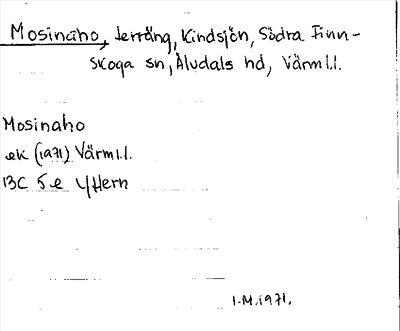 Mosinaho, terräng, Kindsjön, Södra Finn-
skoga sn, Älvdals hd, Värml.
Mosinaho
ek (1971) Värml.
13C 5e Yttern
I.M.1971.